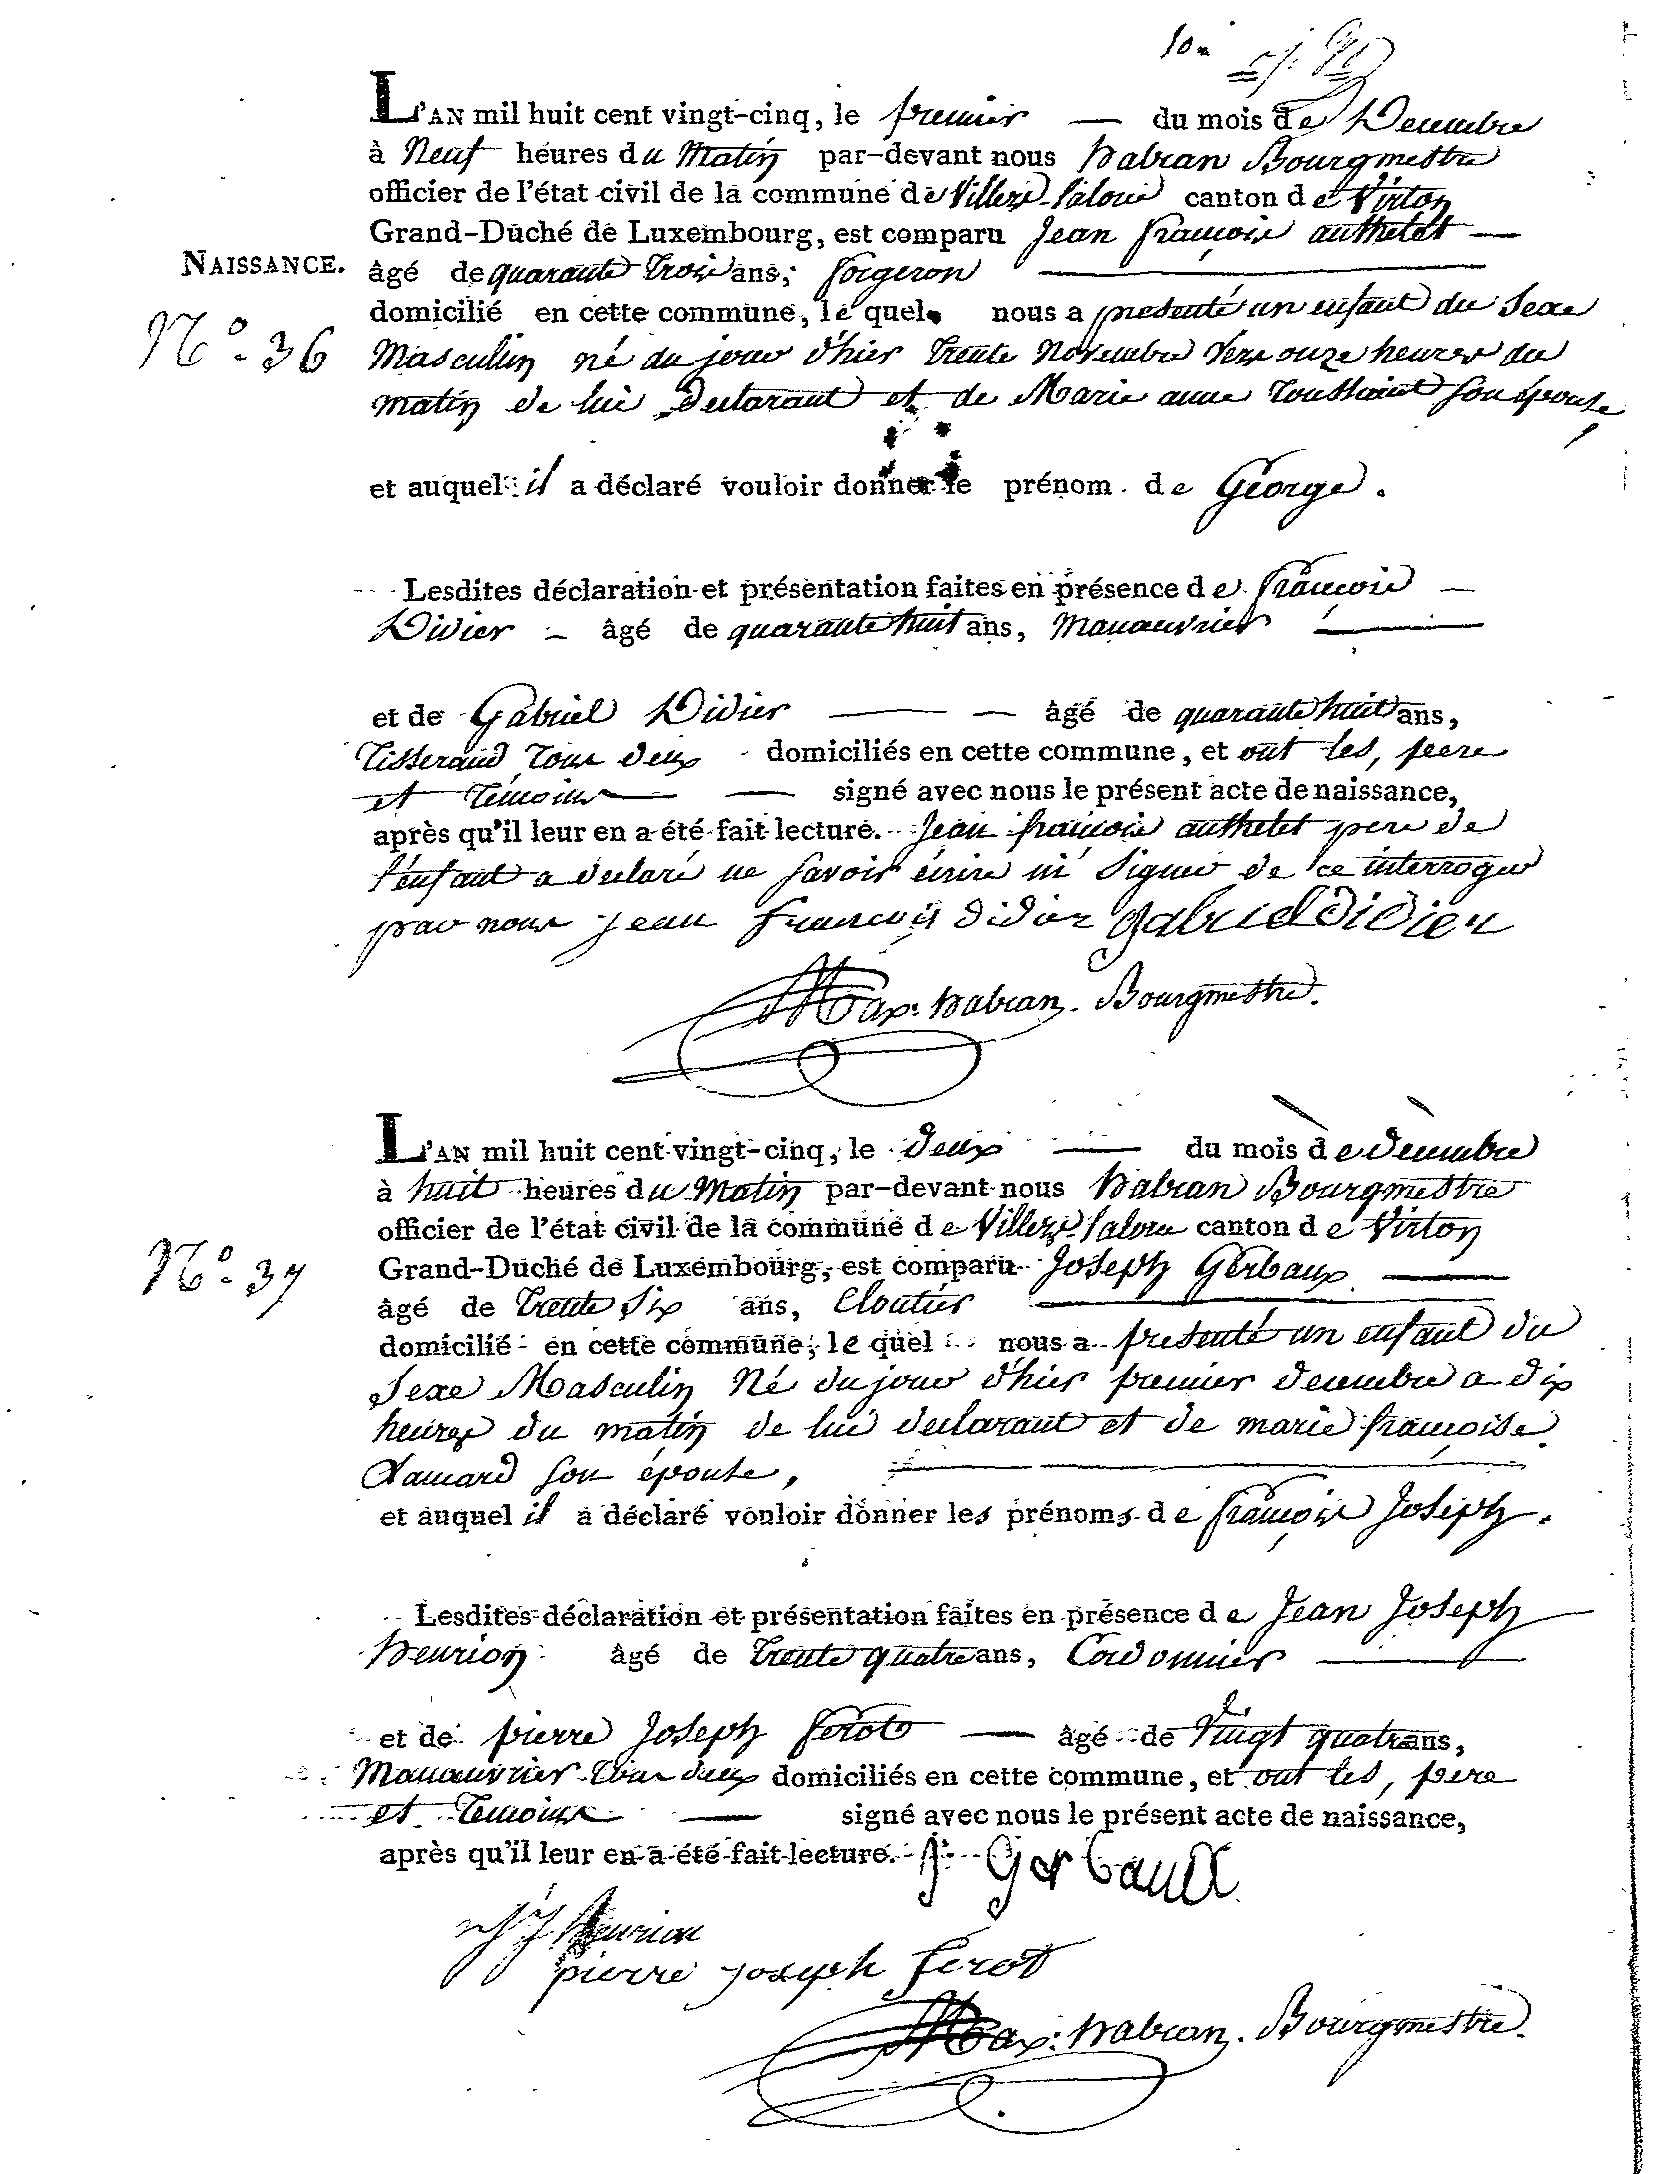 10e
L'AN mil huit cent vingt-cinq, le premier — du mois de Decembre
à Neuf heures du Matin par-devant nous habran Bourgmestre
officier de l'état civil de la commune de Villers-laloue canton de Virton
Grand-Duché de Luxembourg, est comparu Jean françois authelet —
NAISSANCE. âgé de quarante trois ans, forgeron
domicilié en cette commune, le quel nous a presenté un enfant du Sexe
N.° 36 Masculin né du jour d'hier trente Novembre vers onze heures du
matin de lui declarant et de Marie anne toussaint son épouse,
et auquel il a déclaré vouloir donner le prénom de George.
Lesdites déclaration et présentation faites en présence de françois —
Didier — âgé de quarante huit ans, Manœuvrier
et de Gabriel Didier — — âgé de quarante huit ans,
Tisserand tous deux domiciliés en cette commune, et ont les, pere
et temoins — signé avec nous le présent acte de naissance,
après qu'il leur en a été fait lecture. Jean françois authelet pere de
l'enfant a declaré ne savoir écrire ni signer de ce interrogué
par nous jean francois didier gabriel didier
Max. habran. Bourgmestre.
L'AN mil huit cent vingt-cinq, le deux — du mois de decembre
à huit heures du Matin par-devant nous habran Bourgmestre
officier de l'état civil de la commune de Villers-laloue canton de Virton
N.° 37 Grand-Duché de Luxembourg, est comparu Joseph Gerbaux —
âgé de trente six ans, Cloutier
domicilié en cette commune, le quel nous a presenté un enfant du
Sexe Masculin Né du jour d'hier premier decembre a dix
heures du matin de lui declarant et de marie françoise
son épouse,
et auquel il a déclaré vouloir donner les prénoms de françois Joseph.
Lesdites déclaration et présentation faites en présence de Jean Joseph
henrion âgé de trente quatre ans, Cordonnier
et de pierre Joseph ferot — âgé de Vingt quatre ans,
Manœuvrier tous deux domiciliés en cette commune, et ont les, pere
et temoins — signé avec nous le présent acte de naissance,
après qu'il leur en a été fait lecture. J. Gerbaux
J J henrion
pierre joseph ferot
Max. habran. Bourgmestre.